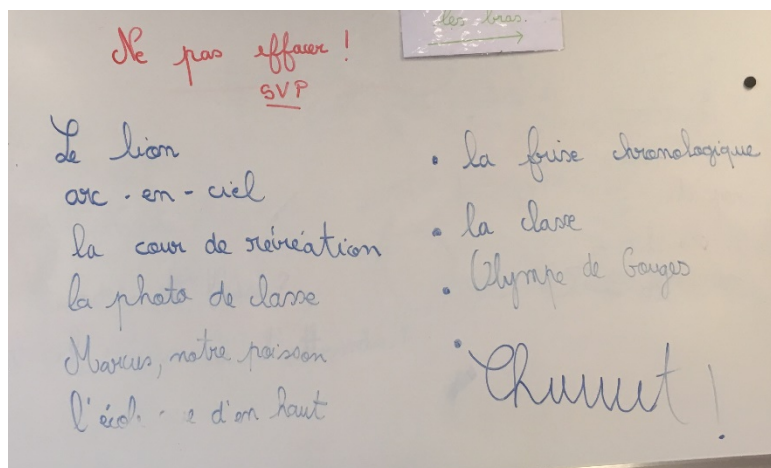 les bras.
Ne pas effacer !
SVP
Le lion
arc-en-ciel
la cour de récréation
la photo de classe
Marcus, notre poisson
d'en haut
• la frise chronologique
• la classe
• Olympe de Gouges
• Chuuut !